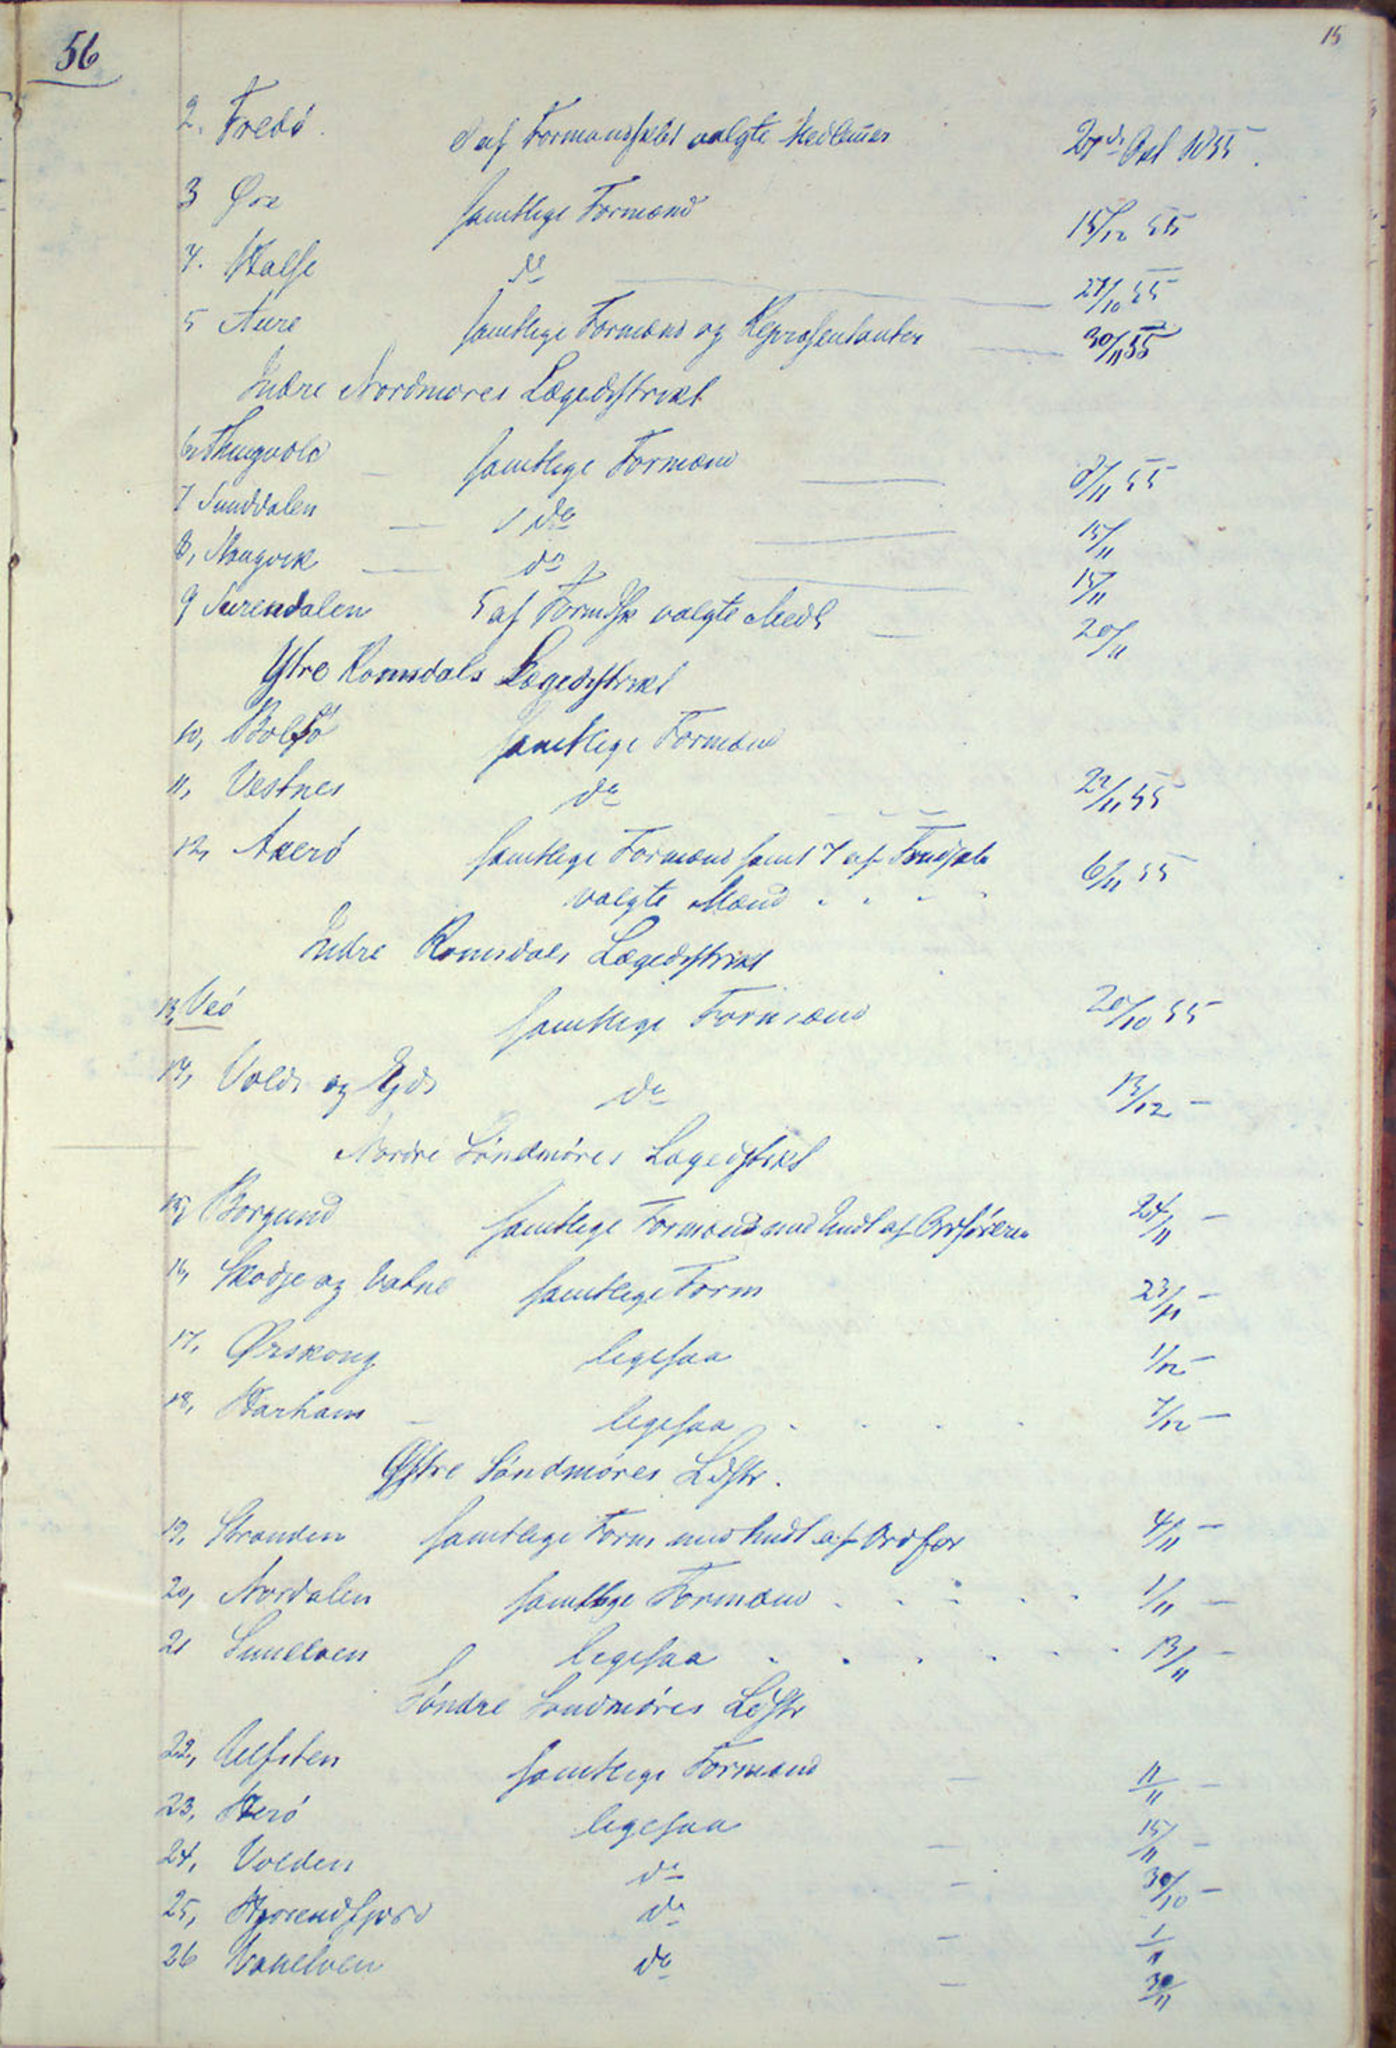 56
15
2. Fredö. af Formandskabet valgte Medlemmer 27de Oct 1855.
3 Öre samtlige Formænd 15/12 55
4. Halse do 27/10 55
5 Aure samtlige Formænd og Repræsentanter 30/11 55
Indre Nordmøres Lægedistrikt
6, Thingvold samtlige Formænd /11 55
7 Sunddalen do 15/11
8, Stangvik do 15/11
9 Surendalen 5 af Formdsk valgte Medl 20/11
Ytre Romsdals Lægedistrikt
10, Bolsö samtlige Formænd
11, Vestnes do 22/11 55
12, Akerö samtlige Formænd samt 7 af Fmdskb 6/11 55
valgte Mænd
Indre Romsdals Lægedistrikt
13, Veö samtlige Formænd 20/10 55
14, Volds og Eids do 13/12 —
Nordre Söndmöres Lægedistrikt
15, Borgund samtlige Formænd med Undt af Ordföreren 24/11 —
16, Skodje og Vatne samtlige Form 23/11 —
17, Ørskoug ligesaa 1/12 —
18, Harham ligesaa 7/12 —
Østre Söndmöres Ldistr.
19, Stranden samtlige Form med Undt af Ordför 4/11 —
20, Nordalen samtlige Formænd 1/11 —
21 Sunelven ligesaa 13/11 —
Söndre Söndmöres Ldistr
22, Ulfsten samtlige Formænd 11/11 —
23, Herö ligesaa 15/11 —
24, Volden do 30/10 —
25, Hjörendfjord do 1/11
26 Vanelven do 30/11